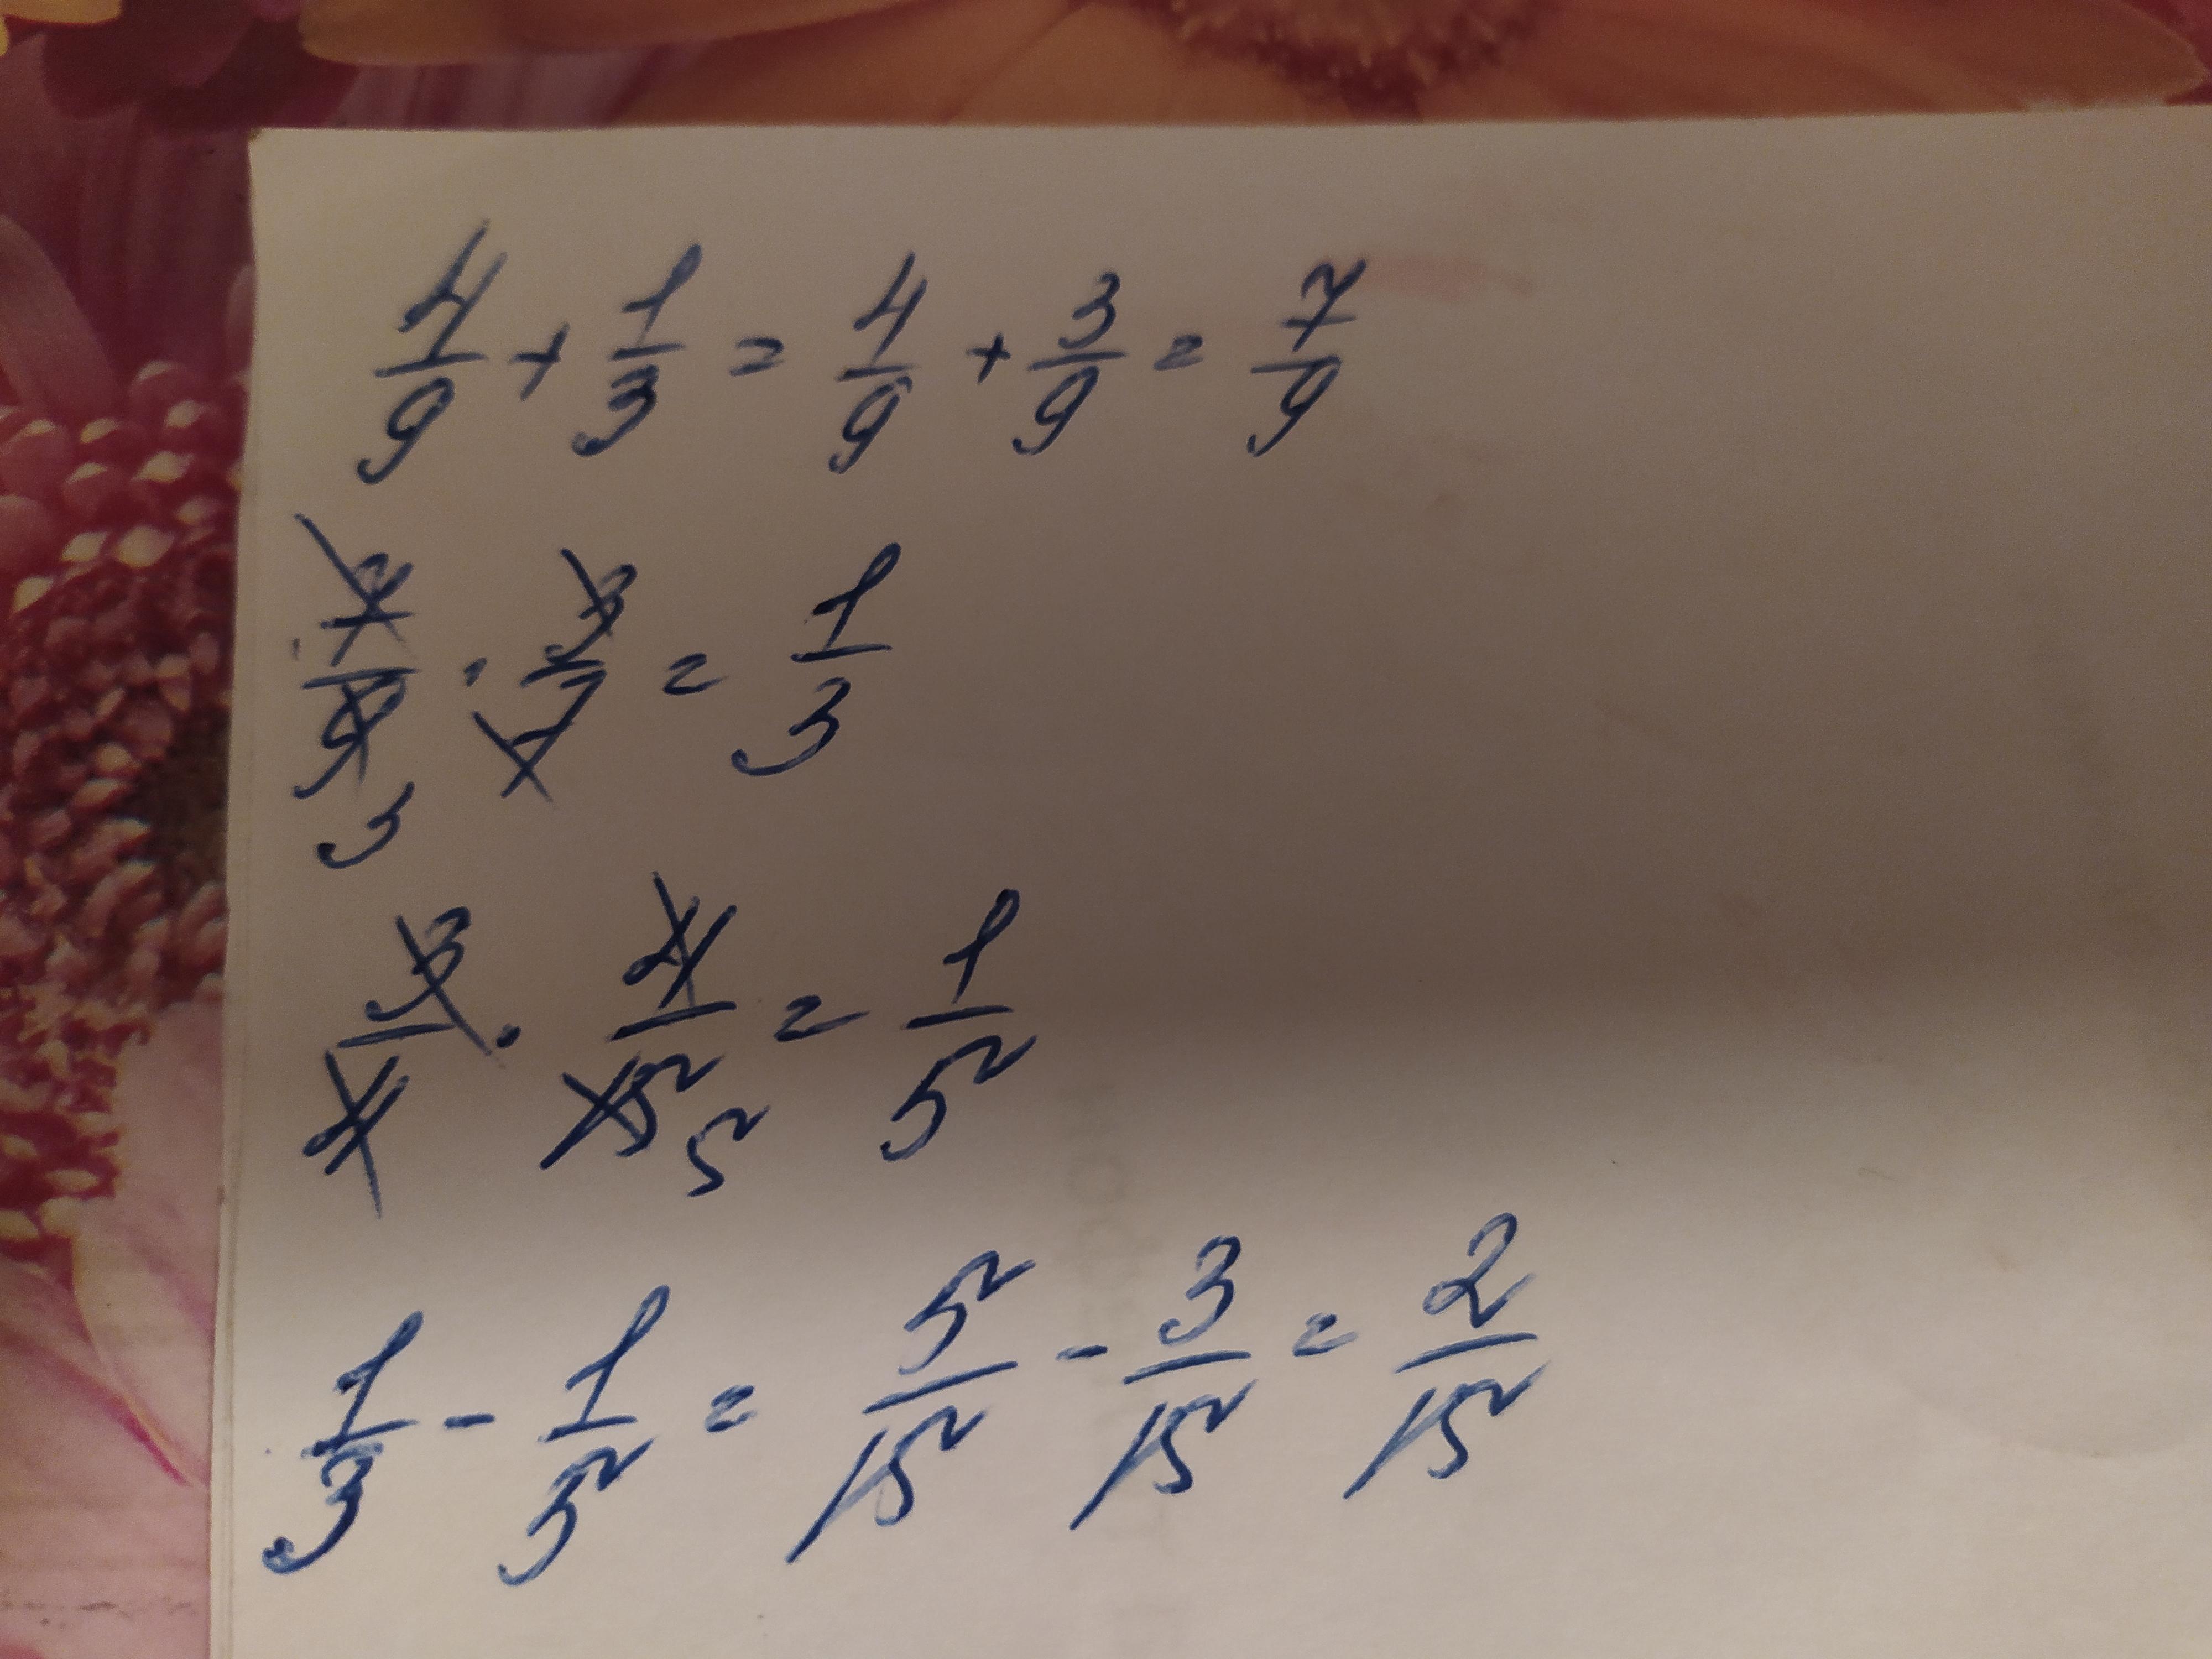 4/9 + 1/3 = 4/9 + 3/9 = 7/9
7/9 3 · 3/7 = 1/3
3/4 · 4/15 5 = 1/5
1/3 - 1/5 = 5/15 - 3/15 = 2/15